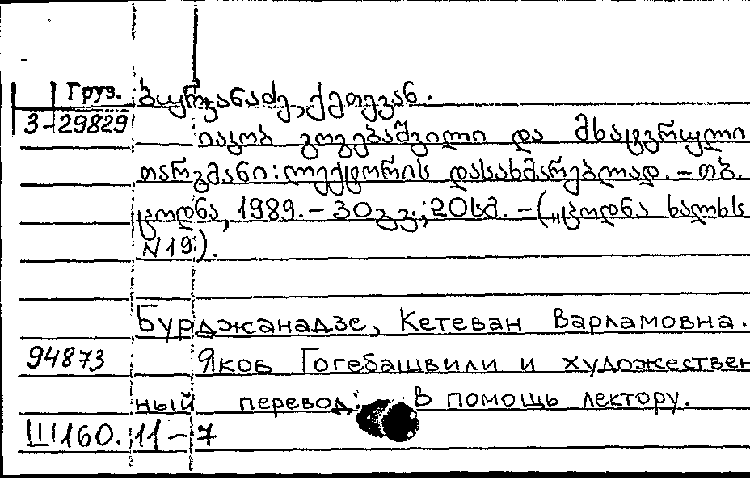 Груз. ბურჯანაძე, ქეთევან.
3-29829
იაკობ გოგებაშვილი და მხატვრული
თარგმანი: ლექტორის დასახმარებლად. – თბ.
ცოდნა, 1989. – 30გვ.; 20სმ. – („ცოდნა ხალხს
N19).
Бурджанадзе, Кетеван Варламовна.
94873 Яков Гогебашвили и художествен
ный перевод: В помощь лектору.
III160. 11–7